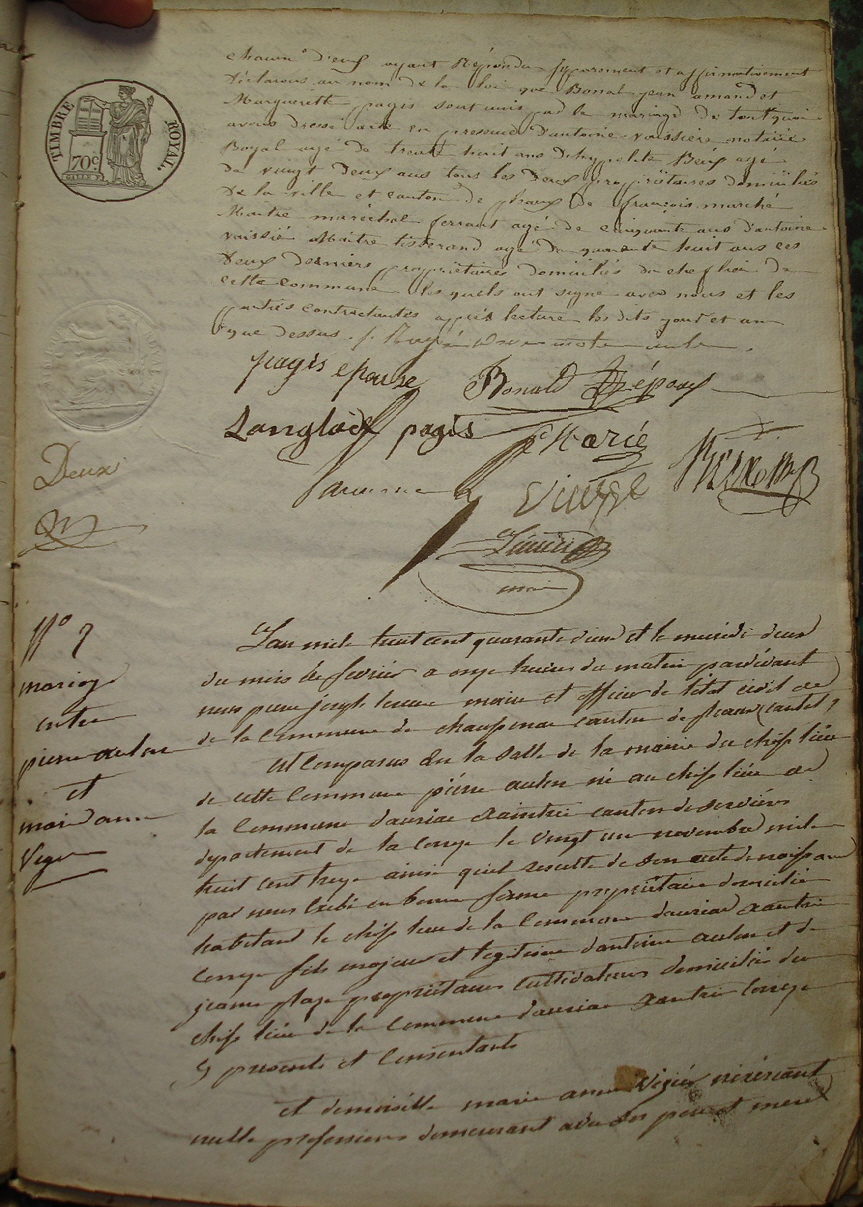 TIMBRE ROYAL.
70c
chacun d'eux ayant répondu séparement et affirmativement
déclarons au nom de la loi que Bonal jean amand et
Margueritte pagis sont unis par le mariage de tout quoi
avons dressé acte en presence d'antoine vaissiere notaire
Royal agé de trente huit ans d'hypolite Beix age
de vingt deux ans tous les deux propriétaires domiciliés
de la ville et canton de pleaux de françois marché
Maitre maréchal ferrant agé de cinquante ans d'antoine
vaissié Maitre tisserand agé de quarente huit ans ces
deux derniers propriétaires domiciliés du chef lieu de
cette commune les quels ont signé avec nous et les
parties contractantes après lecture les dits jour et an
que dessus
pagis epouse Bonald époux
Langlade pagis
Deux
maire
N° 2
mariage
entre
pierre
et
marie anne
L'an mile huit cent quarante deux et le mercredi deux
du mois de fevrier a onze heures du matin pardevant
nous maire et officier de l'état civil de
de la Commune de chaussenac canton de pleaux (cantal)
est Comparus en la salle de la mairie du chef lieu
de cette Commune pierre né au chef lieu de
la Commune dauriac Xaintrie canton de servières
departement de la Correze le vingt un novembre mile
huit cent treze ainsi qu'il resulte de son acte de naissance
par nous Exibé en bonne forme propriétaire domicilié
habitant le chef lieu de la Commune dauriac Xaintrie
Correze fils majeur et legitime dantoine et de
jeanne plaze propriétaires Cultivateurs domiciliés du
chef lieu de la Commune dauriac Xaintrie Correze
y presents et Consentants
et demoiselle marie anne
nulle profession demeurant avec ses pere et mere